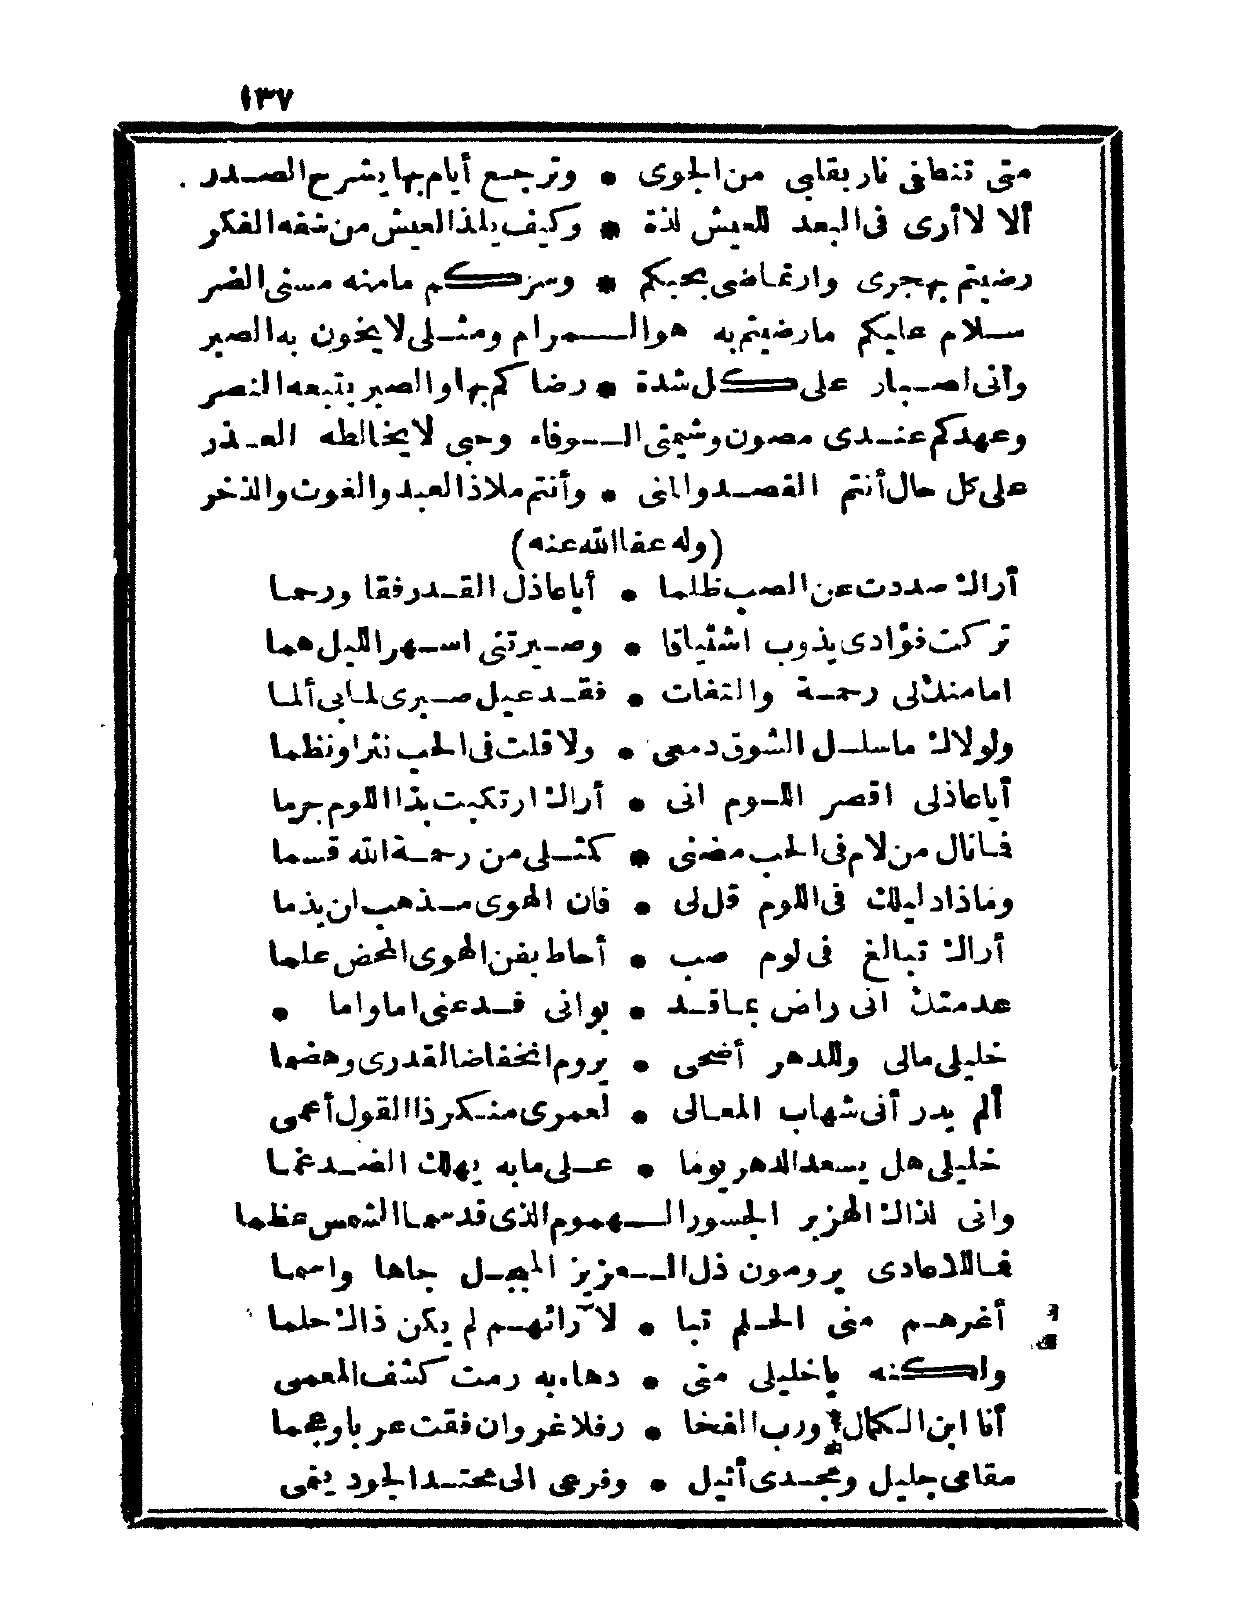 ١٣٧
متى تنطفى نار بقلبى من الجوى * وترجع أيام بها يشرح الصدر
ألا لا أرى فى البعد للعيش لذة * وكيف يلذ العيش من شفه الفكر
رضيتم بهجرى وارتماضى بحبكم * وسركم ما منه مسنى الضر
سلام عليكم ما رضيتم به هو المرام ومثلى لا يخون به الصبر
وأنى اصبار على كل شدة * رضاكم بها والصبر يتبعه النصر
وعهدكم عندى مصون وشيمتى الوفاء وحبى لا يخالطه العذر
على كل حال أنتم القصد والمنى * وأنتم ملاذ العبد والغوث والذخر
(وله عفا الله عنه)
أراك صددت عن الصب ظلما * أيا عاذل القد رفقا ورحما
تركت فؤادى يذوب اشتياقا * وصيرتنى اسهر الليل هما
اما منك لى رحمة والتفات * فقد عيل صبرى لما بى ألما
ولولاك ما سلسل الشوق دمعى * ولا قلت فى الحب نثرا ونظما
أيا عاذلى اقصر اللوم انى * أراك ارتكبت بذا اللوم جرما
فما نال من لام فى الحب مضنى * كمثلى من رحمة الله قسما
وماذا دليلك فى اللوم قل لى * فان الهوى مذهب ان يذما
أراك تبالغ فى لوم صب * أحاط بفن الهوى المحض علما
عدمتك انى راض بما قد * بوانى فدعنى اما واما *
خليلى مالى وللدهر أضحى * يروم انخفاضا لقدرى وهضما
ألم يدر أنى شهاب المعالى * لعمرى منكر ذا القول أعمى
خليلى هل يسعد الدهر يوما * على ما به يهلك الضد غما
وانى لذاك الهزبر الجسور الهموم الذى قد سما الشمس عظما
فما للاعادى يرومون ذل العزيز المبجل جاها واسما
أغرهم منى الحلم تبا * لآرائهم لم يكن ذاك حلما
ولكنه يا خليلى متى * دهاء به رمت كشف المعمى
أنا ابن الكمال ورب الفخا * ر فلا غرو ان فقت عربا وعجما
مقامى جليل ومجدى أثيل * وفرعى الى محتد الجود ينمى